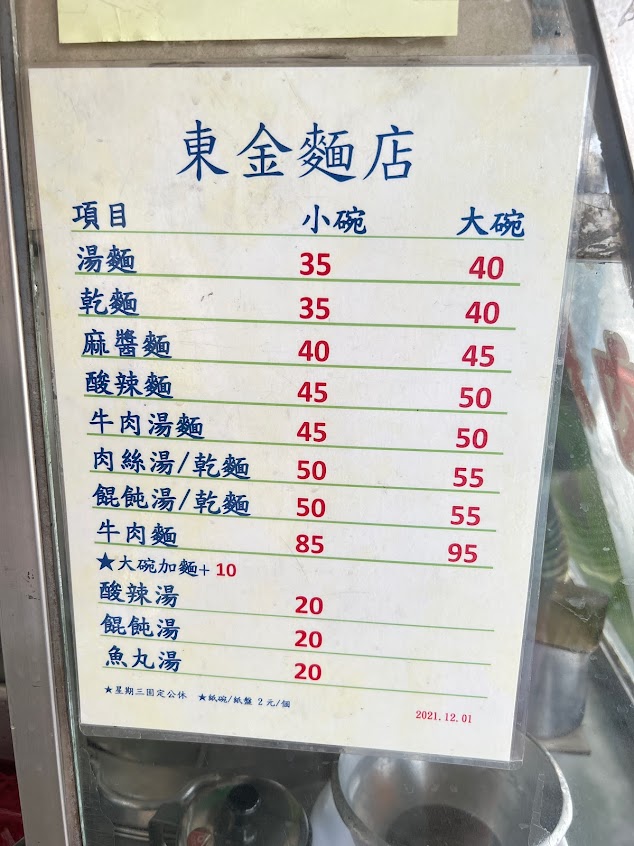 東金麵店
項目 小碗 大碗
湯麵 35 40
乾麵 35 40
麻醬麵 40 45
酸辣麵 45 50
牛肉湯麵 45 50
肉絲湯/乾麵 50 55
餛飩湯/乾麵 50 55
牛肉麵 85 95
★大碗加麵+ 10
酸辣湯 20
餛飩湯 20
魚丸湯 20
★星期三固定公休 ★紙碗/紙盤 2 元/個
2021.12.01